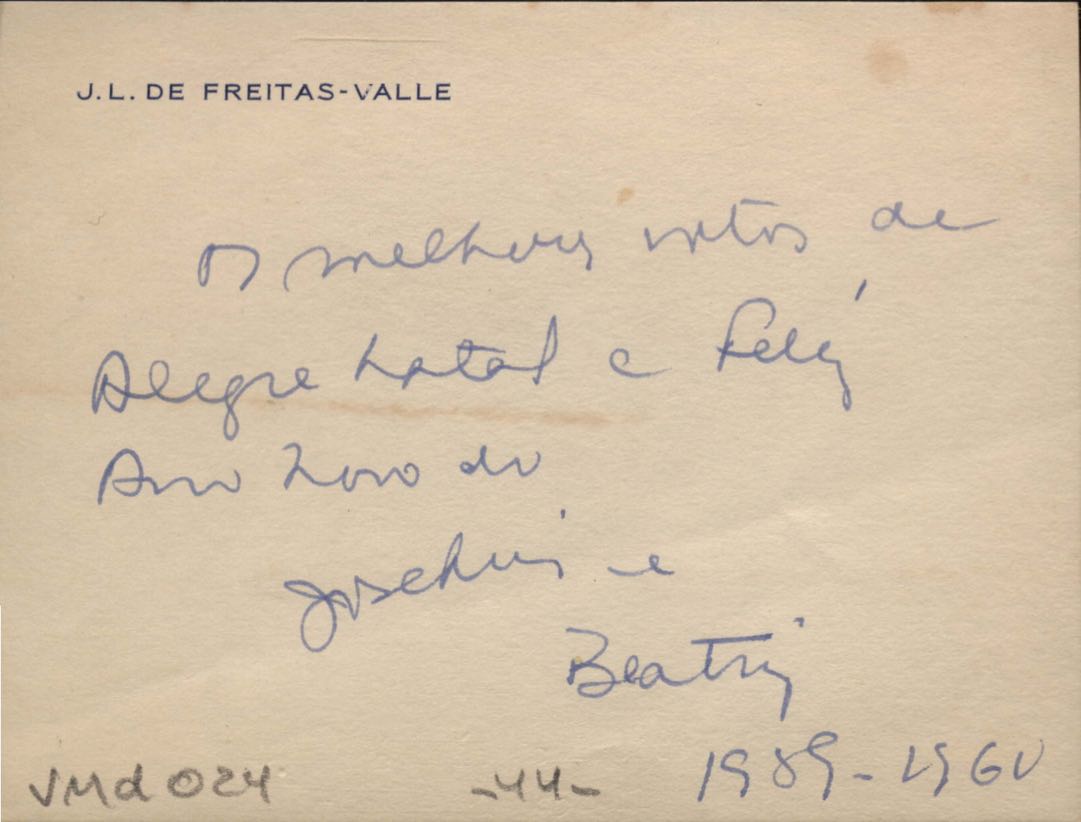 J.L. DE FREITAS-VALLE
Os melhores votos de
Alegre Natal e Feliz
Ano Novo do
José Luis e
Beatriz
1959-1960
VMd 024 -44-